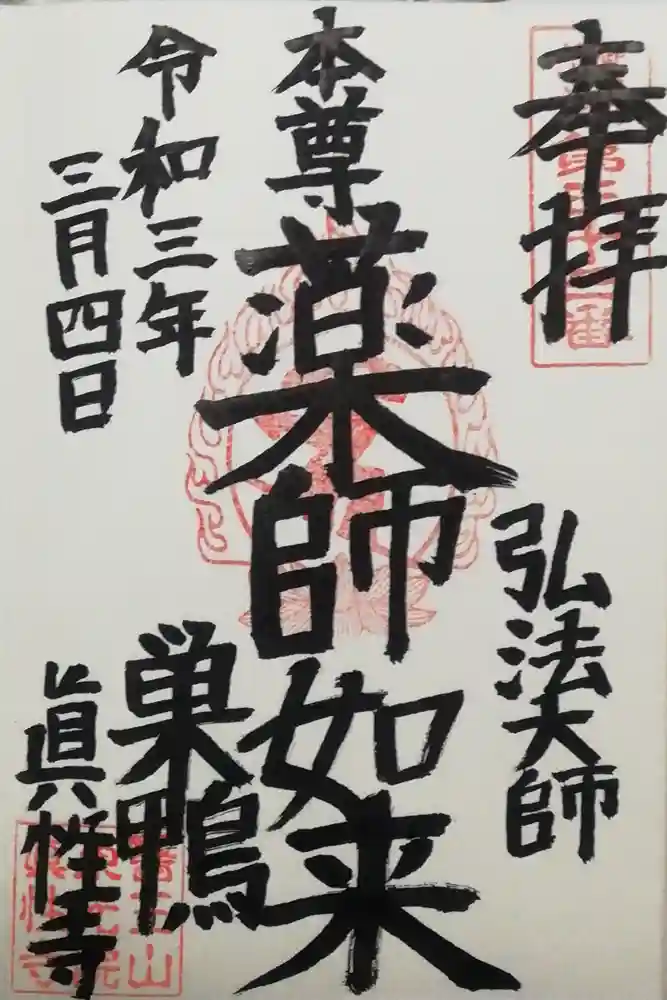 奉拝
弘法大師
本尊薬師如来
令和三年
三月四日
巣鴨
眞性寺